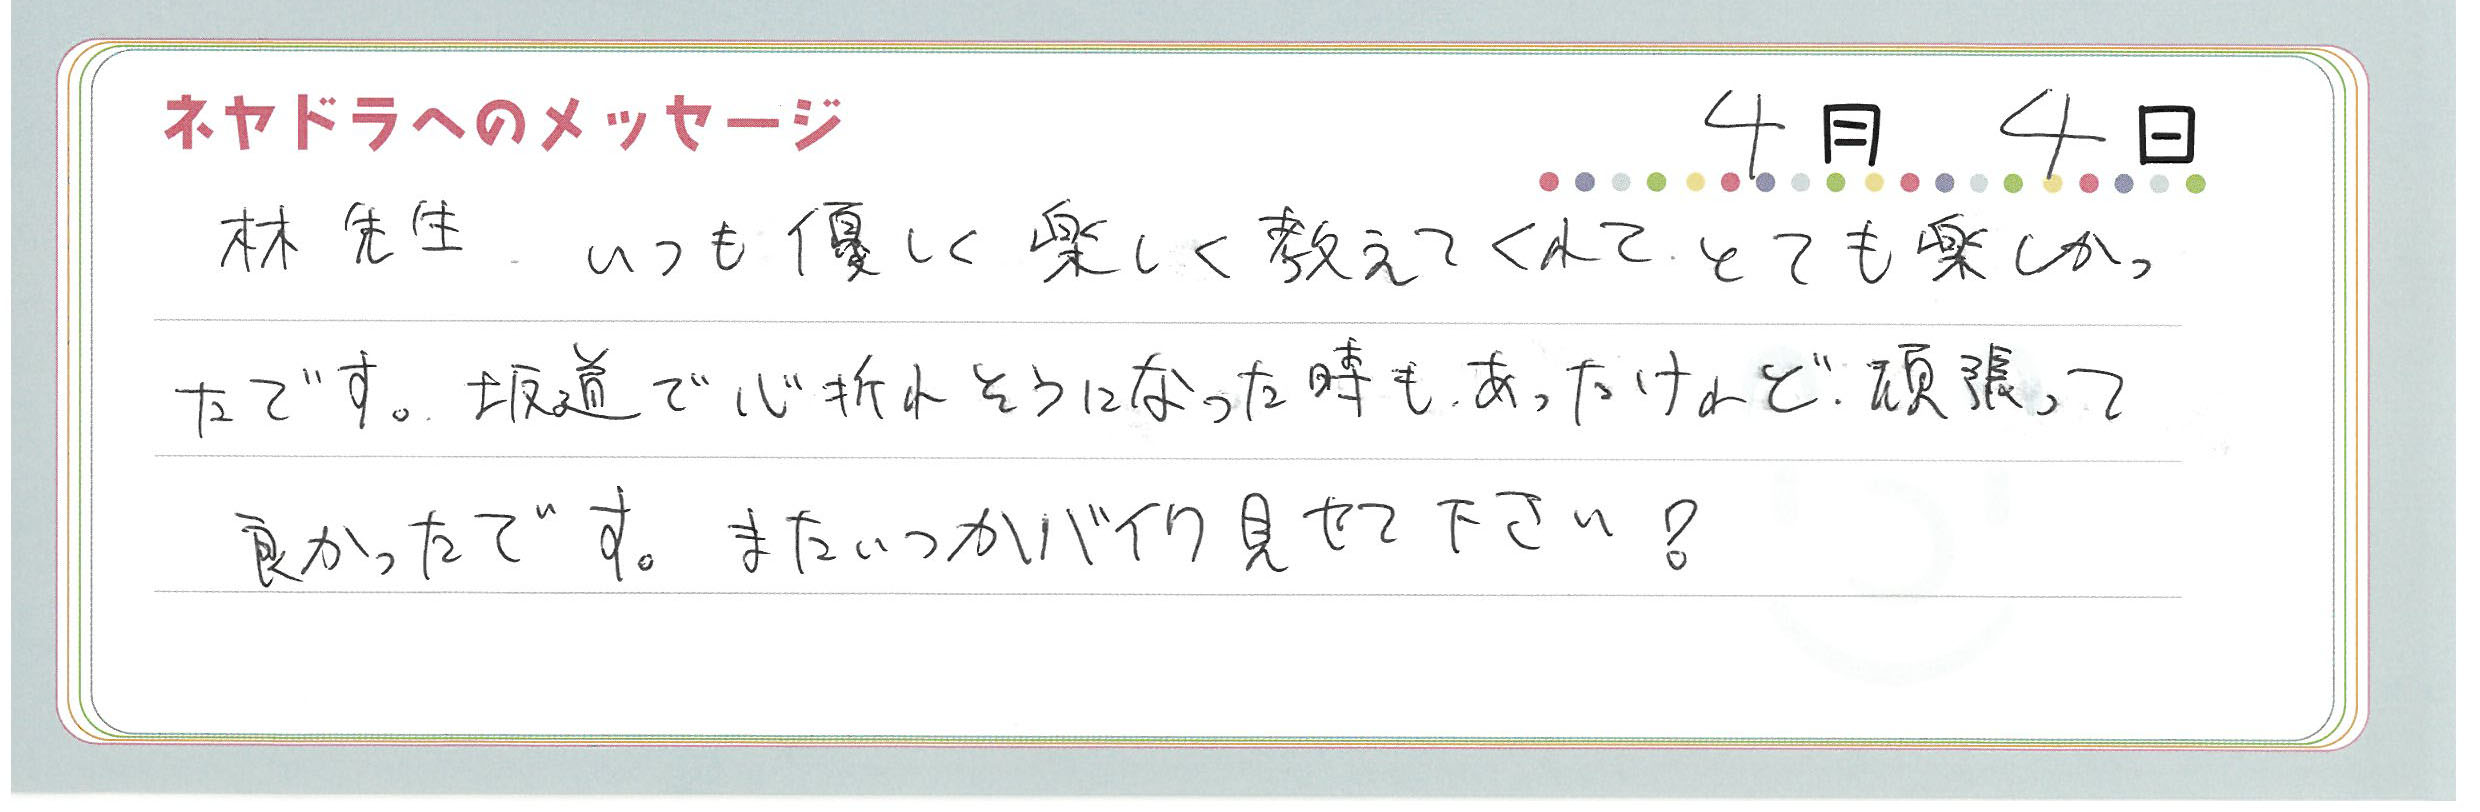 ネヤドラへのメッセージ
4月 4日
林先生 いつも優しく楽しく教えてくれて とても楽しかっ
たです。坂道で心折れそうになった時も、あったけれど、頑張って
良かったです。またいつかバイク見せて下さい!